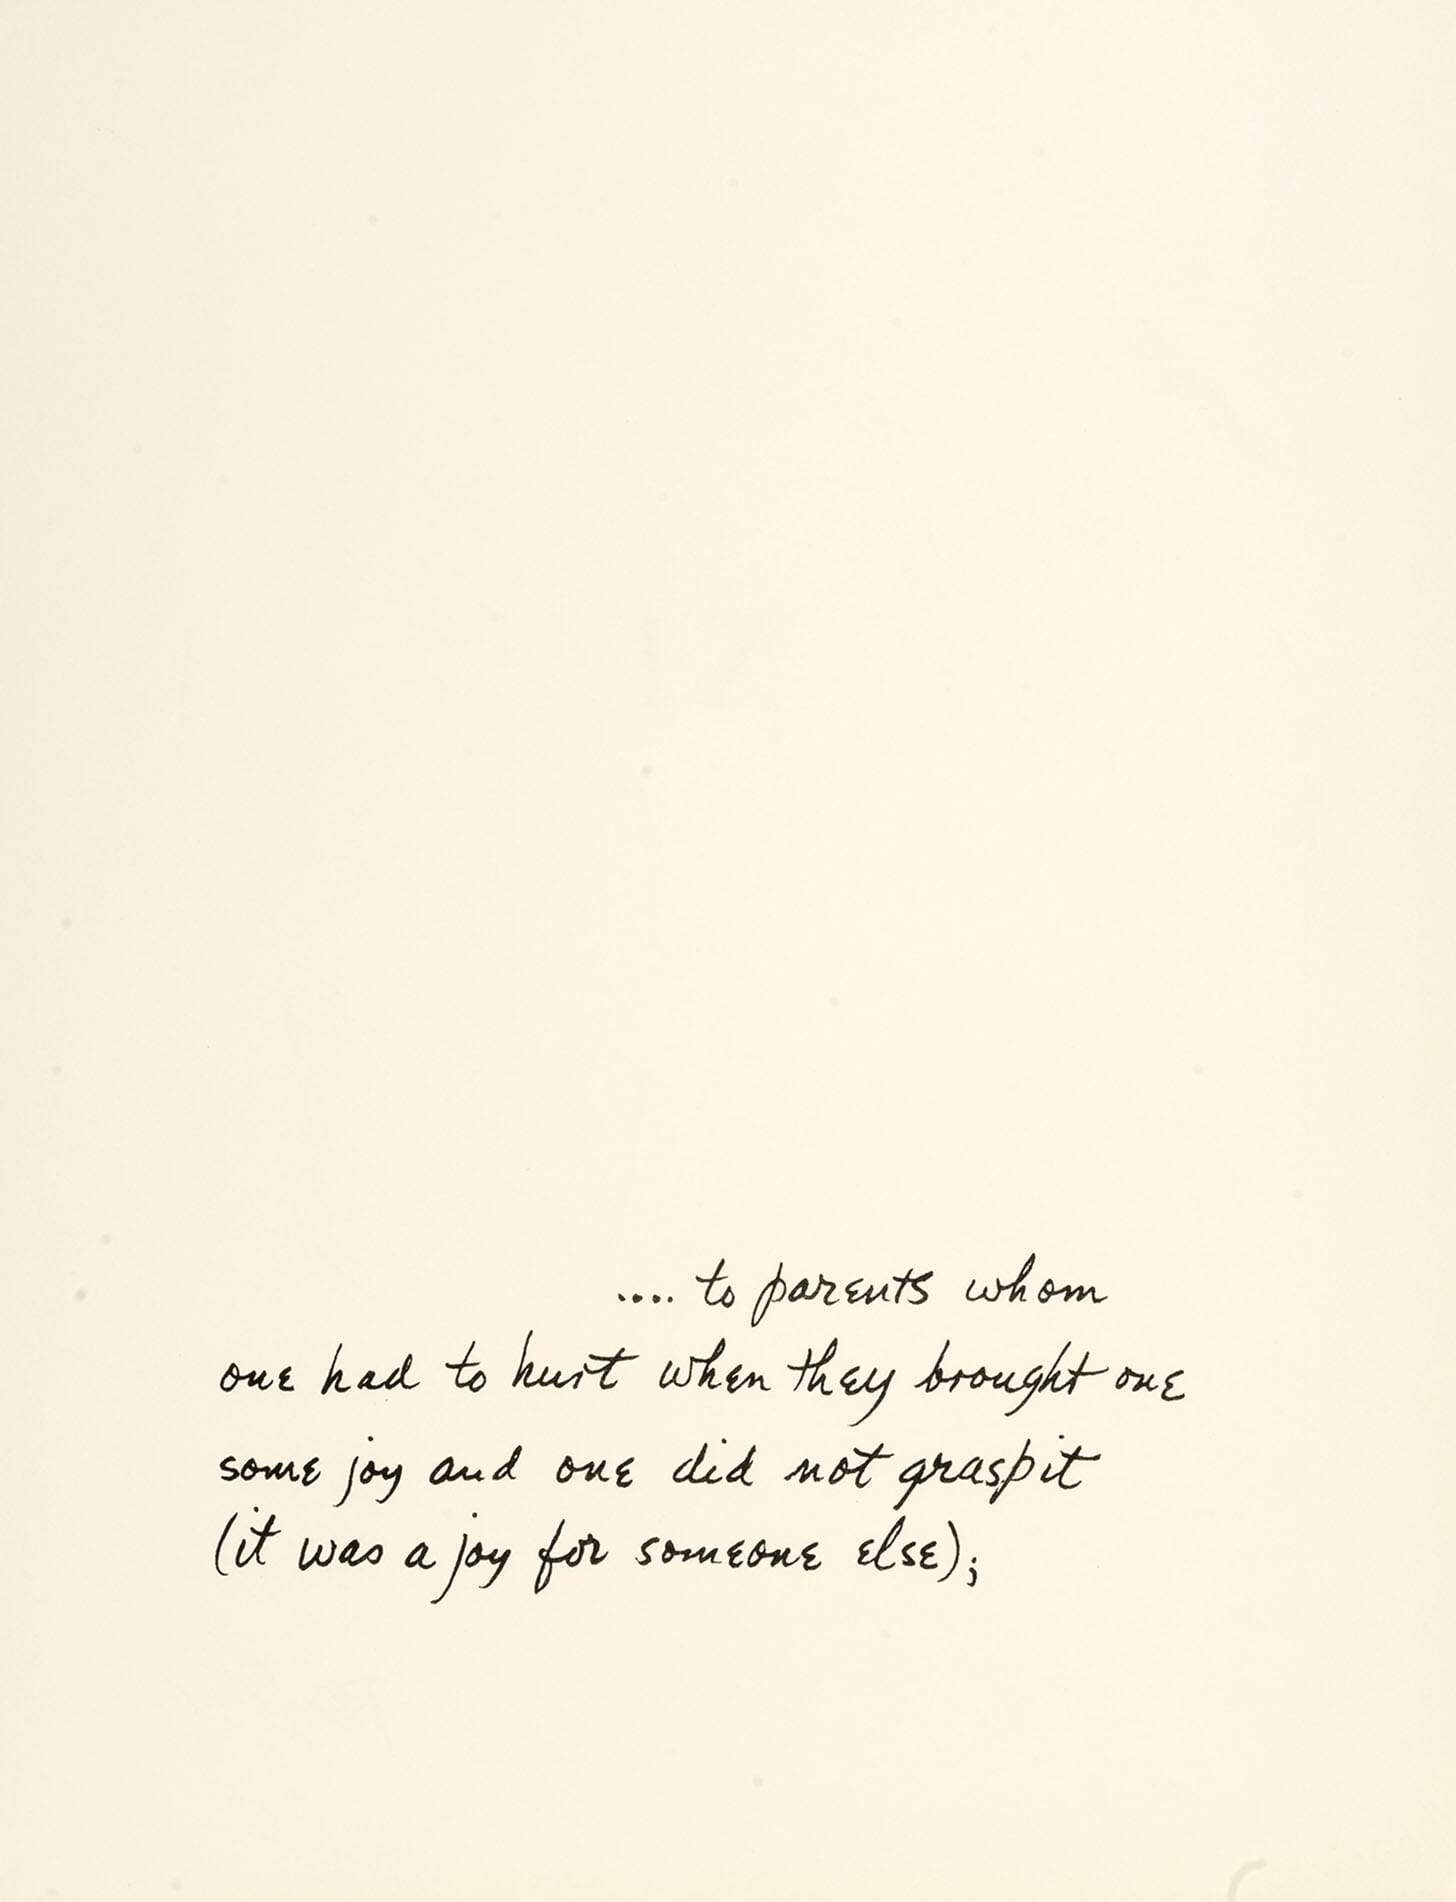 .... to parents whom
one had to hurt when they brought one
some joy and one did not grasp it
(it was a joy for someone else);